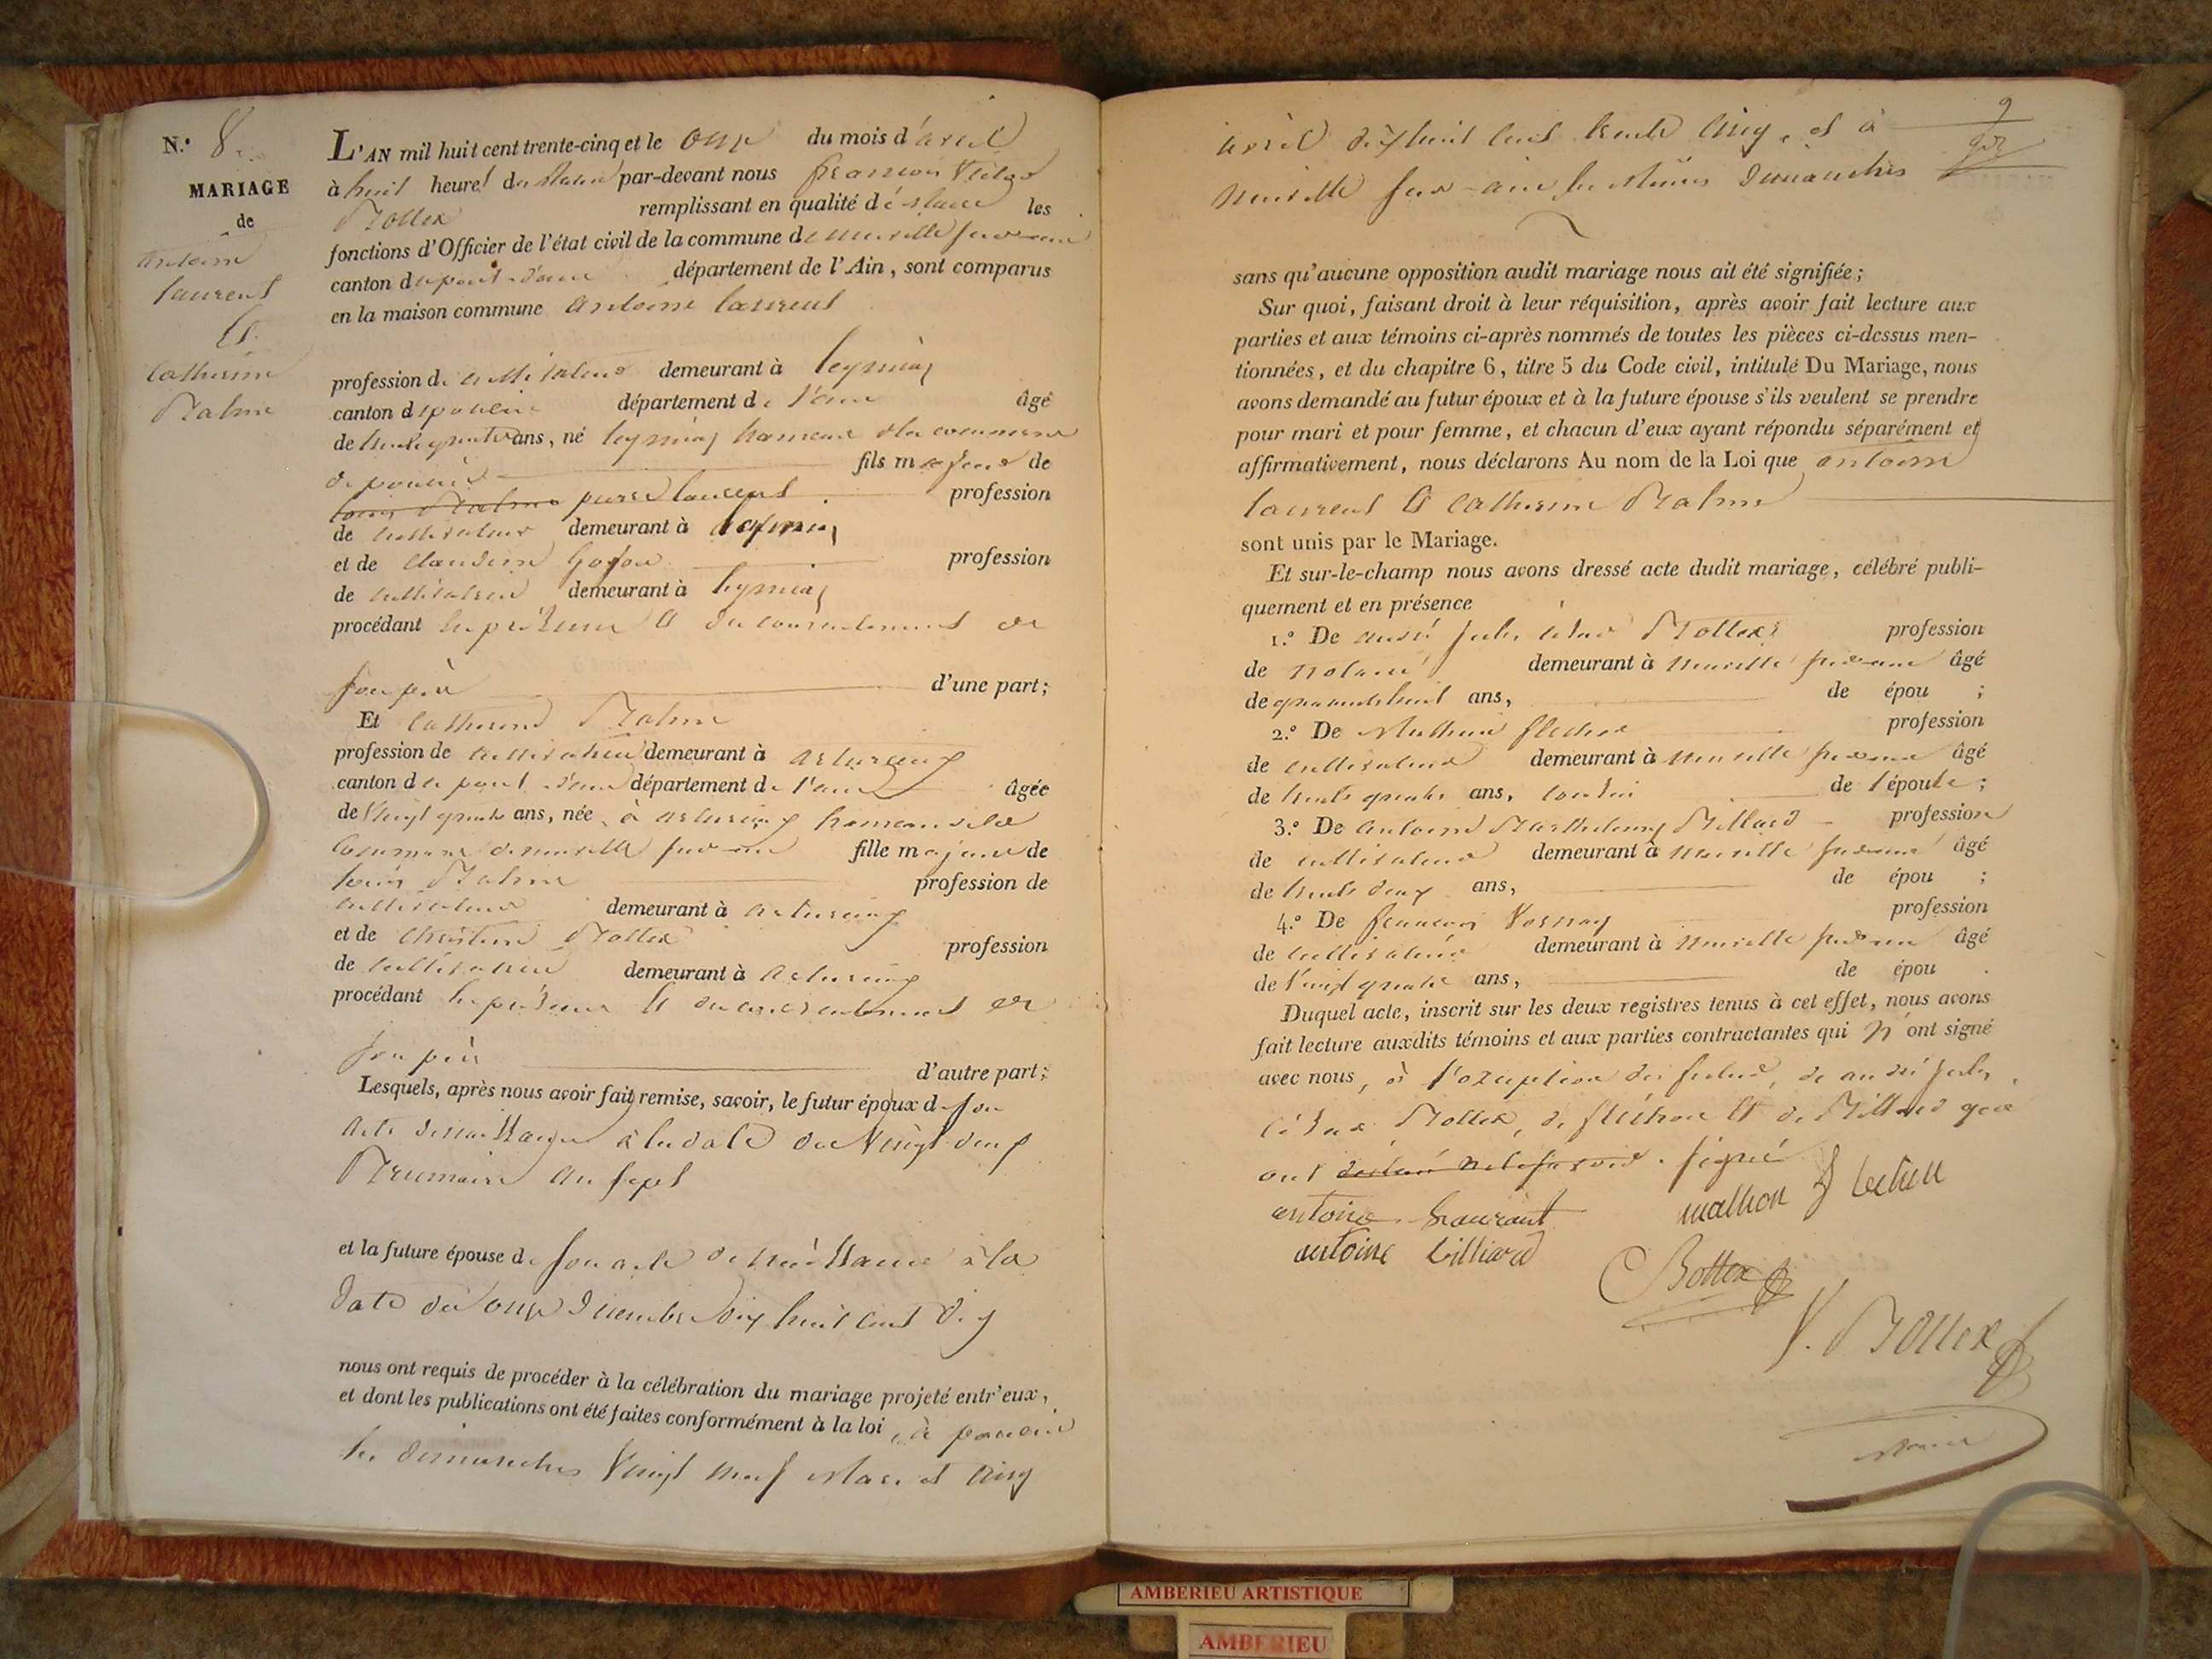 N.° 8.
MARIAGE
de
antoine
laurent
Et
Catherine
Balme
L'AN mil huit cent trente-cinq et le onze du mois d'avril
à huit heures du Matin par-devant nous françois
Bottex remplissant en qualité de Maire les
fonctions d'Officier de l'état civil de la commune de neuville sur ain
canton du pont d'ain département de l'Ain, sont comparus
en la maison commune antoine laurent
profession de cultivateur demeurant à leymiaz
canton de poncin département de l'ain âgé
de trente quatre ans, né leymiaz hameau de la commune
de poncin fils majeur de
louis Balme pierre laurent profession
de cultivateur demeurant à leymiaz
et de Claudine Goyon profession
de cultivatrice demeurant à leymiaz
procédant et du consentement de
son père d'une part;
Et Catherine Balme
profession de cultivatrice demeurant à
canton du pont d'ain département de l'ain âgée
de Vingt quatre ans, née à hameau de la
Commune de neuville sur ain fille majeure de
louis Balme profession de
cultivateur demeurant à
et de Bottex profession
de cultivatrice demeurant à
procédant et du consentement de
son père d'autre part;
Lesquels, après nous avoir fait remise, savoir, le futur époux de son
acte de naissance à la date du Vingt deux
Brumaire an sept
et la future épouse de son acte de naissance à la
date du onze Décembre dix huit cent dix
nous ont requis de procéder à la célébration du mariage projeté entr'eux,
et dont les publications ont été faites conformément à la loi, à poncin
les dimanches Vingt neuf Mars et cinq
9
avril dix huit cent trente cinq, et à
neuville sur ain les Mêmes Dimanches
sans qu'aucune opposition audit mariage nous ait été signifiée;
Sur quoi, faisant droit à leur réquisition, après avoir fait lecture aux
parties et aux témoins ci-après nommés de toutes les pièces ci-dessus men-
tionnées, et du chapitre 6, titre 5 du Code civil, intitulé Du Mariage, nous
avons demandé au futur époux et à la future épouse s'ils veulent se prendre
pour mari et pour femme, et chacun d'eux ayant répondu séparément et
affirmativement, nous déclarons Au nom de la Loi que antoine
laurent et Catherine Balme
sont unis par le Mariage.
Et sur-le-champ nous avons dressé acte dudit mariage, célébré publi-
quement et en présence
1.° De andré jules césar Bottex profession
de notaire demeurant à neuville sur ain âgé
de quarante huit ans, de épou ;
2.° De profession
de cultivateur demeurant à neuville sur ain âgé
de trente quatre ans, cousin de l'épouse ;
3.° De antoine Barthelemy Billard profession
de cultivateur demeurant à neuville sur ain âgé
de trente deux ans, de épou ;
4.° De françois profession
de cultivateur demeurant à neuville sur ain âgé
de Vingt quatre ans, de épou .
Duquel acte, inscrit sur les deux registres tenus à cet effet, nous avons
fait lecture auxdits témoins et aux parties contractantes qui n'ont signé
avec nous, à l'exception du futur, de andré jules
césar Bottex, de fléchon et de Billard qui
ont déclaré ne le savoir. signé
antoine
antoine billiard
Bottex
V. Bottex
Maire
AMBERIEU ARTISTIQUE
AMBERIEU